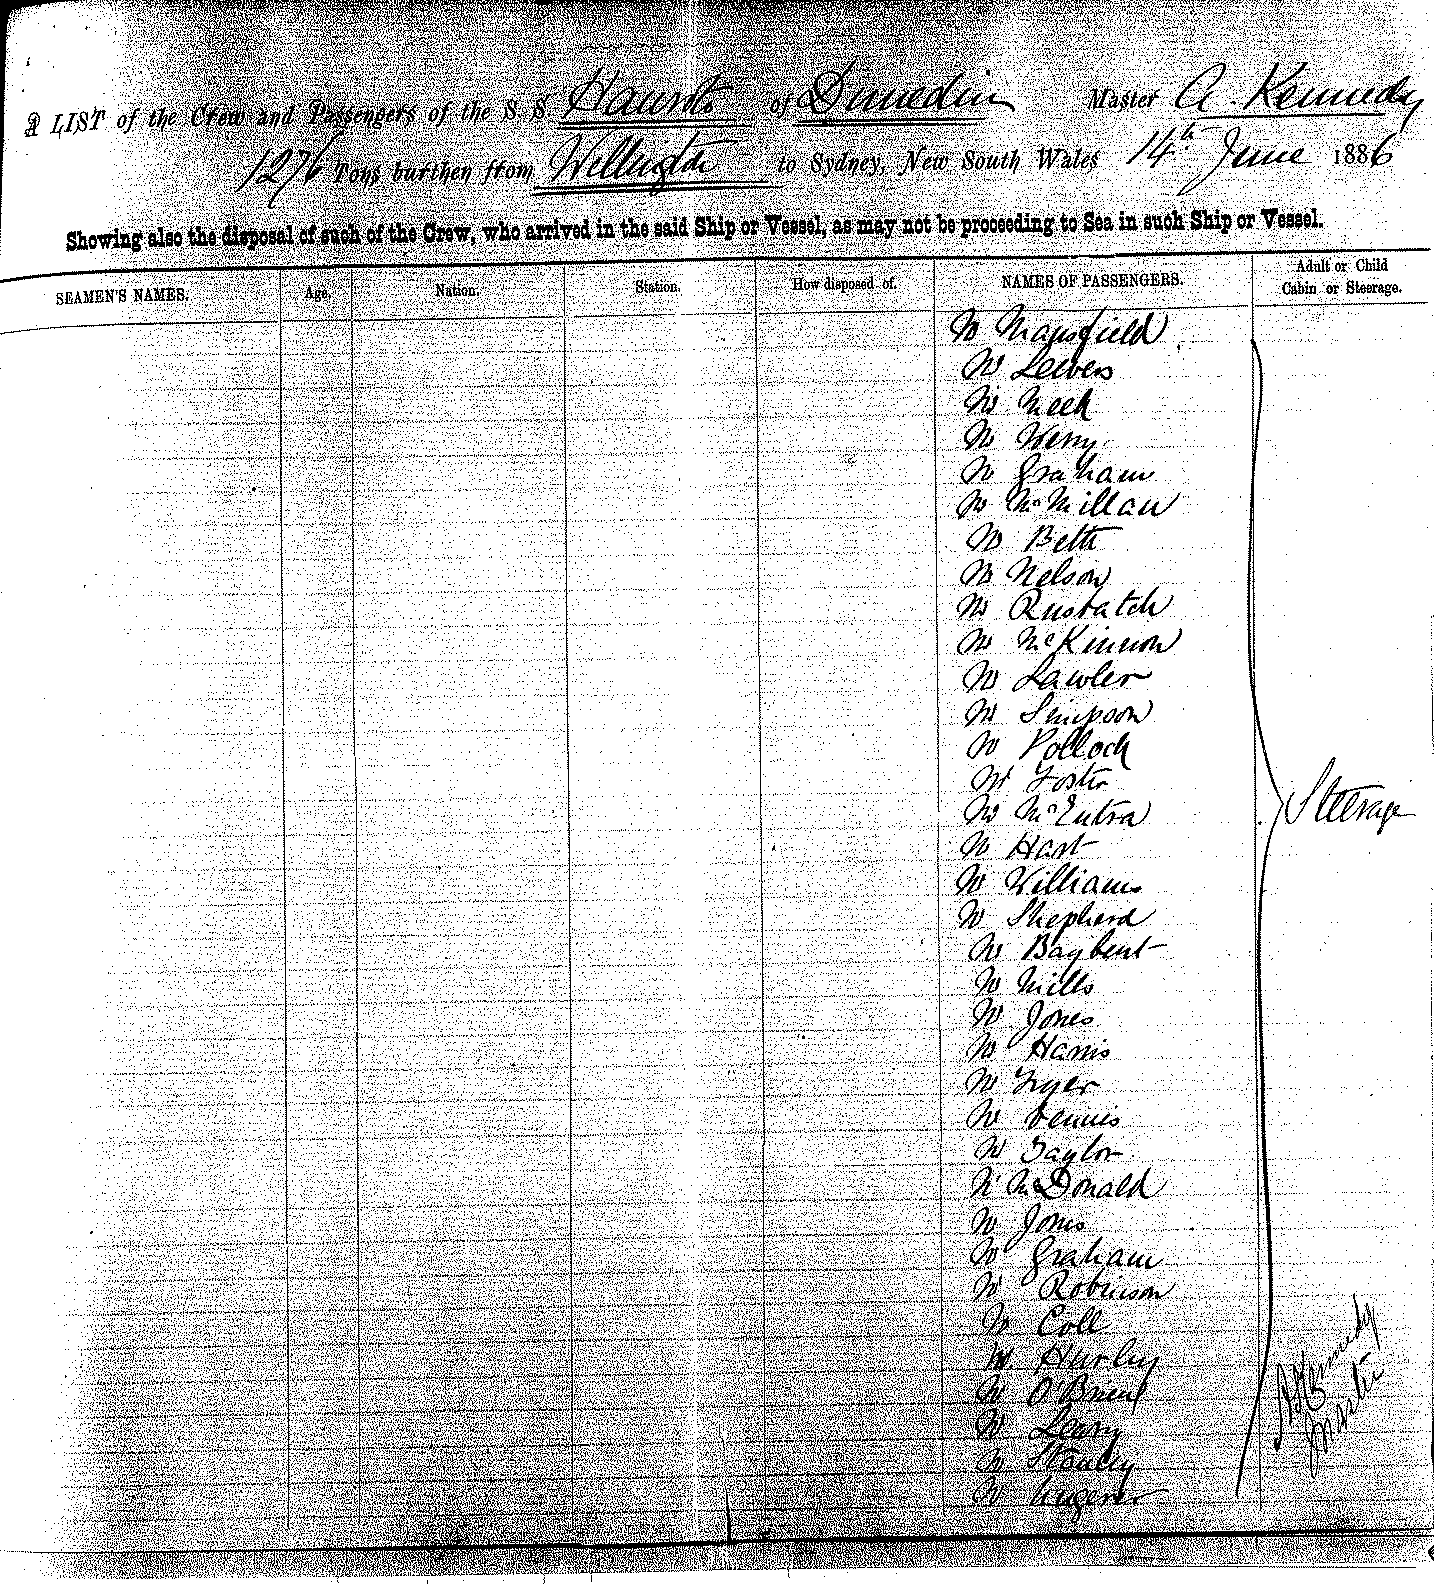 A LIST of the Crew and Passengers of the S.S. Hauroto of Dunedin Master A. Kennedy
1276 Tons burthen from Wellington to Sydney, New South Wales 14th June 1886
Showing also the disposal of such of the Crew, who arrived in the said Ship or Vessel, as may not be proceeding to Sea in such Ship or Vessel.
SEAMEN'S NAMES. Age. Nation. Station. How disposed of. NAMES OF PASSENGERS. Adult or Child
Cabin or Steerage.
Mr Mansfield
Mr Leevers
Mr Meek
Mr Werry
Mr Graham
Mr McMillan
Mr Bett
Mr Nelson
Mr
Mr McKinnon
Mr Lawler
Mr Simpson
Mr Pollock
Mr Foster
Steerage
Mr McEntra
Mr Hart
Mr Williams
Mr Shepherd
Mr Baybent
Mr Mills
Mr Jones
Mr Harris
Mr Fryer
Mr Dennis
Mr Taylor
Mr McDonald
Mr Jones
Mr Graham
Mr Robinson
Mr Coll
Mr Hurley
Mr O'Brien
Mr Leary
Mr Stanley
Mr
A Kennedy
Master